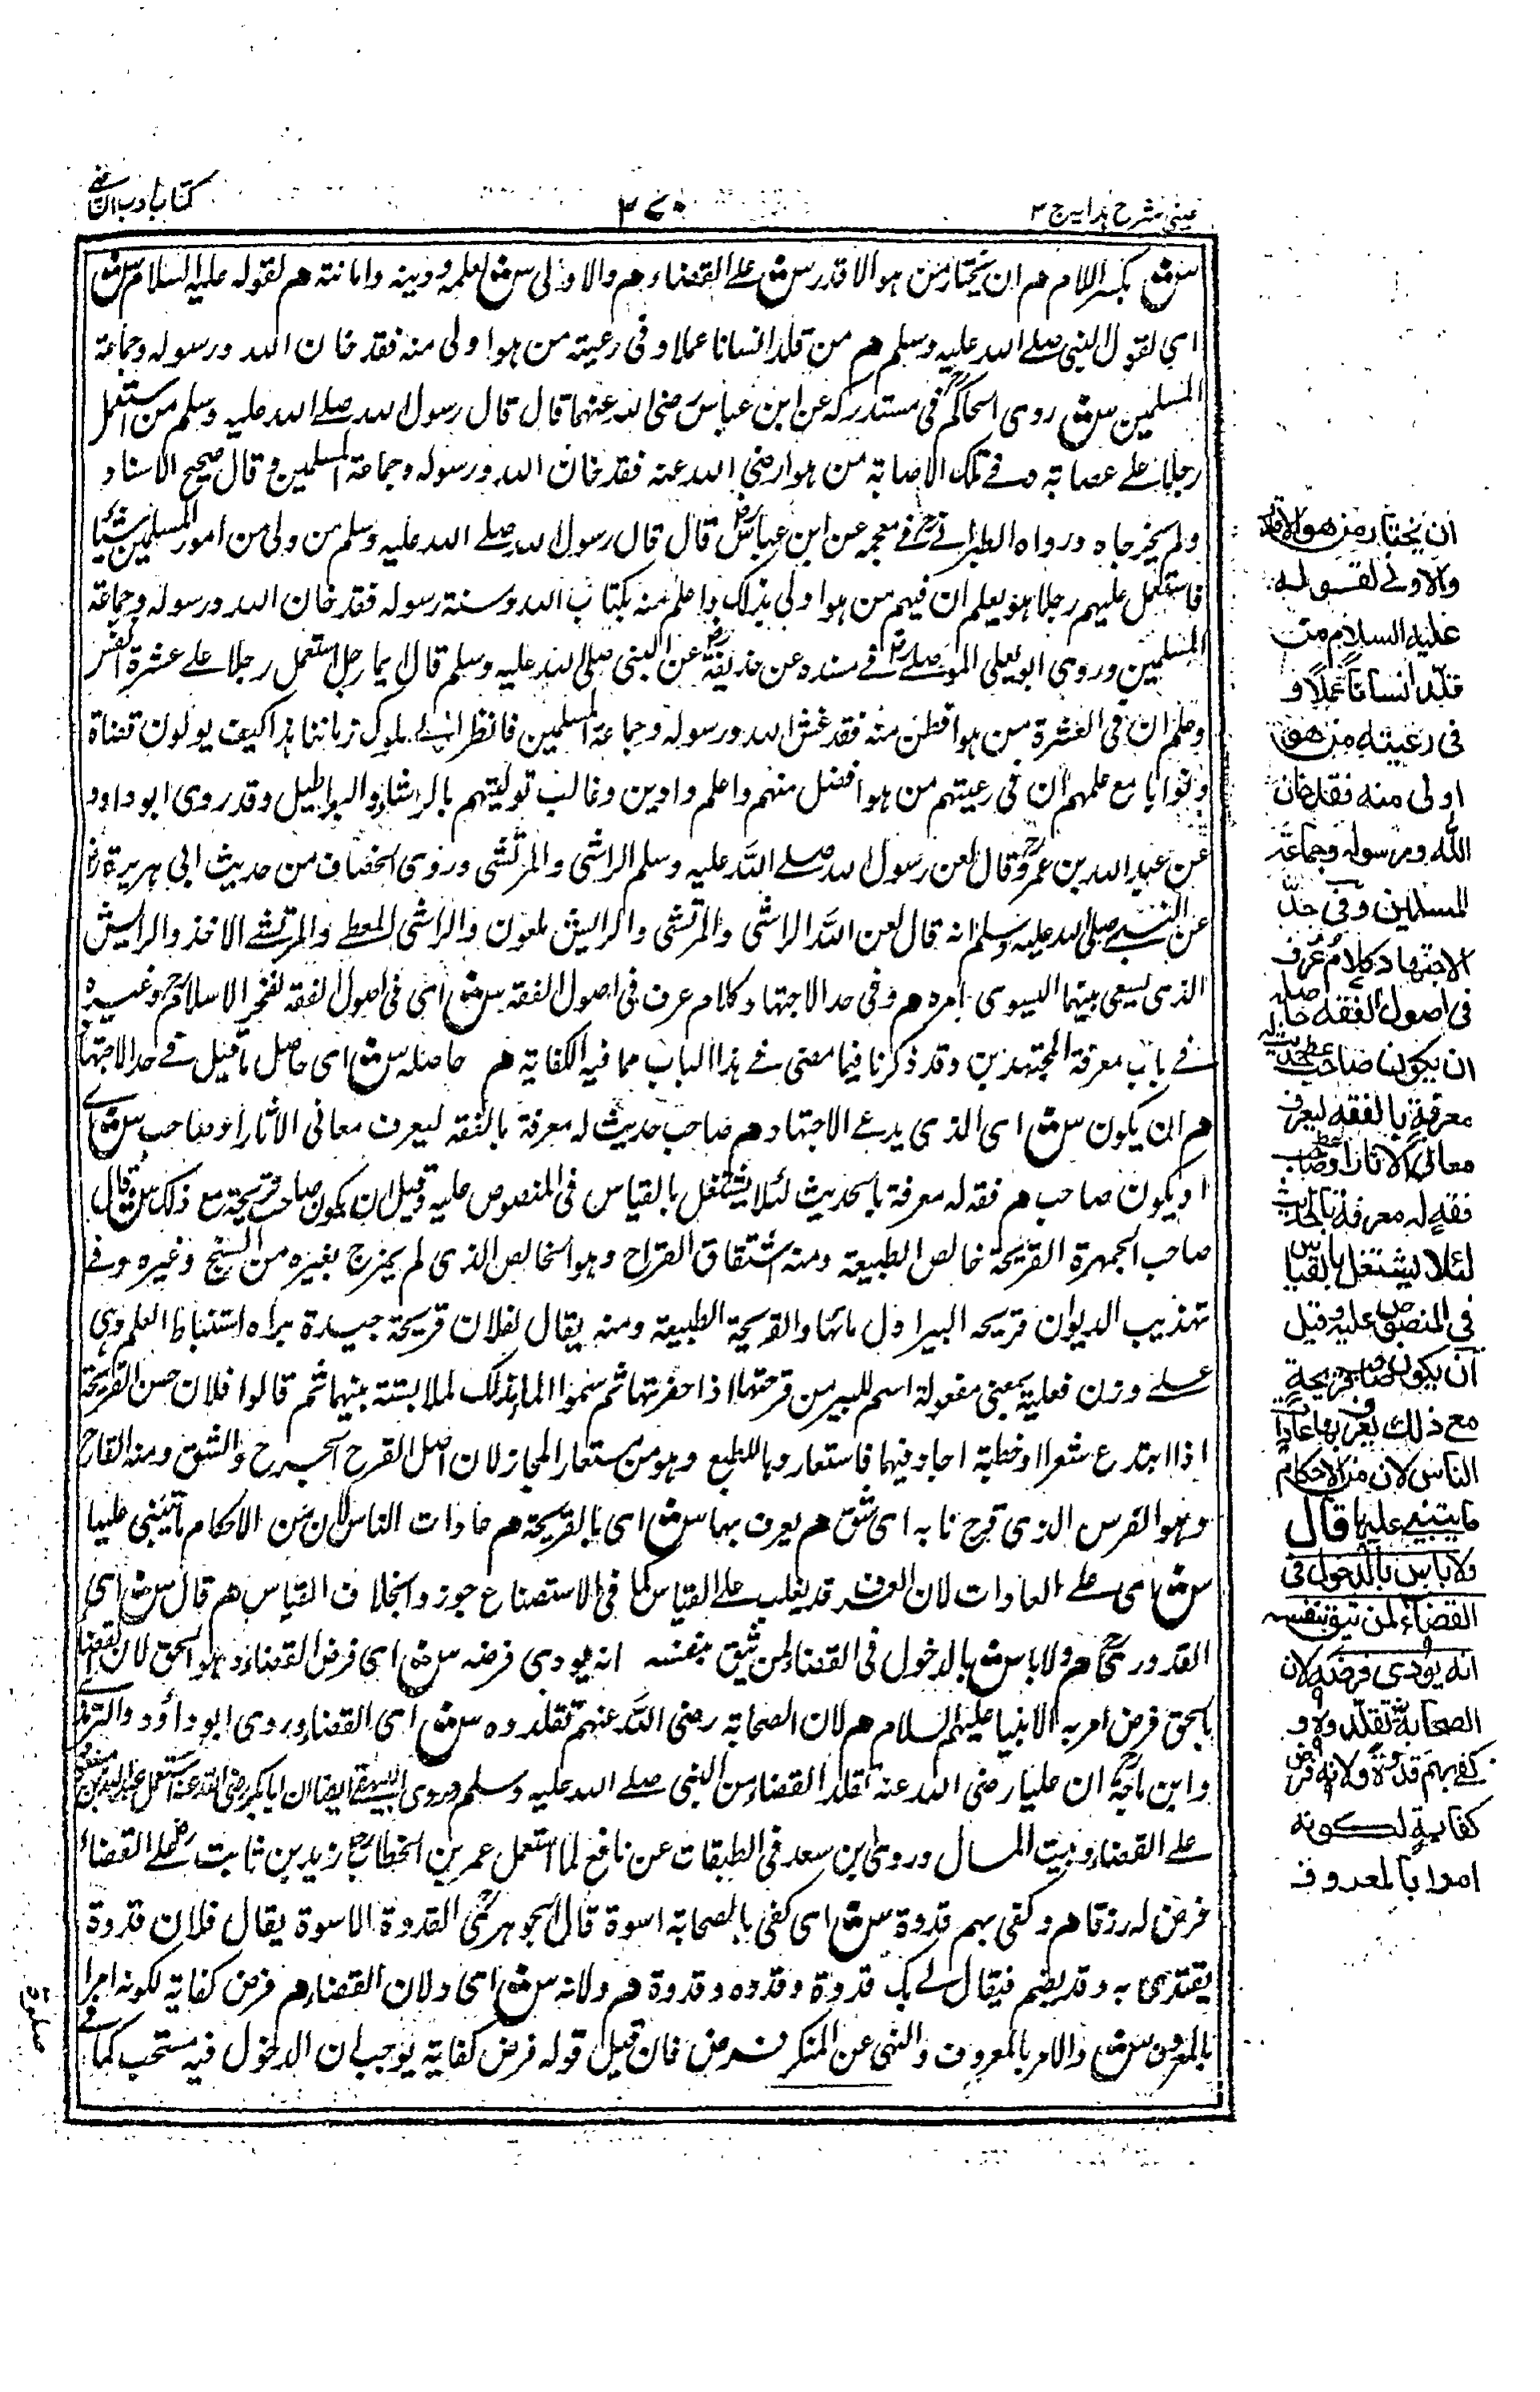 عینی شرح ہدایہ ج ٣
٢٧٠
کتاب ادب القاضی
ش بکسر اللام م ان یختار من ہو الاقدر ش علی القضاء م والاولی ش لعلمہ ودینہ وامانتہ م لقولہ علیہ السلام ش
ای لقول النبی صلے اللہ علیہ وسلم م من قلد انسانا عملا وفی رعیتہ من ہو اولی منہ فقد خان اللہ ورسولہ وجماعۃ
المسلمین ش روی الحاکمؒ فی مستدرکہ عن ابن عباس رضی اللہ عنہما قال قال رسول اللہ صلے اللہ علیہ وسلم من استعمل
رجلا علے عصابۃ وفے تلک الاصابۃ من ہو ارضی اللہ عنہ فقد خان اللہ ورسولہ وجماعۃ المسلمین وقال صحیح الاسناد
ولم یخرجاہ ورواہ الطبرانےؒ فے معجمہ عن ابن عباسؓ قال قال رسول اللہ صلے اللہ علیہ وسلم من ولی من امور المسلمین شیئا
فاستعمل علیہم رجلا ہو یعلم ان فیہم من ہو اولی بذلک واعلم منہ بکتاب اللہ وسنۃ رسولہ فقد خان اللہ ورسولہ وجماعۃ
المسلمین وروی ابو یعلی الموصلےؒ فے مسندہ عن حذیفۃؓ عن النبی صلی اللہ علیہ وسلم قال ایما رجل استعمل رجلا علے عشرۃ انفس
وعلم ان فی العشرۃ من ہو افطن منہ فقد غش اللہ ورسولہ وجماعۃ المسلمین فانظر الے ملوک زماننا ہذا کیف یولون قضاۃ
ونوابا مع علمہم ان فی رعیتہم من ہو افضل منہم واعلم وادین وغالب تولیتہم بالرشاء والبراطیل وقد روی ابو داود
عن عبد اللہ بن عمروؓ قال لعن رسول اللہ صلے اللہ علیہ وسلم الراشی والمرتشی وروی الخصاف من حدیث ابی ہریرۃؓ
عن النبی صلی اللہ علیہ وسلم انہ قال لعن اللہ الراشی والمرتشی والرایش ملعون والراشی المعطے والمرتشے الاخذ والرایش
الذی یسعی بینہما لیسوی امرہ م وفی حد الاجتہاد کلام عرف فی اصول الفقہ ش ای فی اصول الفقہ لفخر الاسلامؒ وغیرہ
فے باب معرفۃ المجتہدین وقد ذکرنا فیما مضی فے ہذا الباب مما فیہ الکفایۃ م حاصلہ ش ای حاصل ما قیل فے حد الاجتہاد
م ان یکون ش ای الذی یدعے الاجتہاد م صاحب حدیث لہ معرفۃ بالفقہ لیعرف معانی الاثار او صاحب ش ای
او یکون صاحب م فقہ لہ معرفۃ بالحدیث لئلا یشتغل بالقیاس فی المنصوص علیہ وقیل ان یکون صاحب قریحۃ مع ذلک ش وقال
صاحب الجمہرۃ القریحۃ خالص الطبیعۃ ومنہ اشتقاق القراح وہو الخالص الذی لم یمزج بغیرہ من السبخ وغیرہ وفے
تہذیب الدیوان قریحہ البیر اول مائہا والقریحۃ الطبیعۃ ومنہ یقال لفلان قریحۃ جیدۃ یراہ استنباط العلم وہی
علے وزن فعلیۃ بمعنی مفعولۃ اسم للبیر من قرحتہا اذا حفرتہا ثم سموا الماء بذلک لملابستہ بینہما ثم قالوا فلان حسن القریحۃ
اذا ابتدع شعرا او خطبۃ اجاد فیہا فاستعاروہا للطبع وہو من مستعار المجاز لان اصل القرح الجرح والشق ومنہ القارح
وہو الفرس الذی قرح نابہ ای شق م یعرف بہا ش ای بالقریحۃ م عادات الناس لان من الاحکام ما یبتنی علیہا
ش ای علے العادات لان العرف قد یغلب علے القیاس کما فی الاستصناع جوز بخلاف القیاس م قال ش ای
القدوریؒ م ولا باس ش بالدخول فی القضاء لمن یثق بنفسہ انہ یودی فرضہ ش ای فرض القضاء وہو الحق لان القضاء
بالحق فرض امر بہ الانبیا علیہم السلام م لان الصحابۃ رضی اللہ عنہم تقلدوہ ش ای القضاء وروی ابو داؤد والترمذے
وابن ماجۃؒ ان علیا رضی اللہ عنہ تقلد القضاء من النبی صلے اللہ علیہ وسلم وروی البیہقے ایضا ان ابا بکر رضی اللہ عنہ استعمل
علے القضاء وبیت المال وروی ابن سعد فی الطبقات عن نافع لما استعمل عمر بن الخطابؓ زید بن ثابتؓ علے القضاء
فرض لہ رزقا م وکفی بہم قدوۃ ش ای کفی بالصحابۃ اسوۃ قال الجوہریؒ القدوۃ الاسوۃ یقال فلان قدوۃ
یقتدی بہ وقد یضم فیقال لے بک قدوۃ وقدوہ وقدوۃ م ولانہ ش ای ولان القضاء م فرض کفایۃ لکونہ امرا
بالمعروف ش والامر بالمعروف والنہی عن المنکر فرض فان قیل قولہ فرض کفایۃ یوجب ان الدخول فیہ مستحب کما فے
صلوۃ
ان یختار من هو الاقدر
والاولے لقوله
علیه السلام من
قلد انسانا عملا و
فی رعیته من هو
اولی منه فقد خان
الله ورسوله وجماعة
المسلمین وفی حد
الاجتهاد کلام عُرف
فی اصول الفقه حاصله
ان یکون صاحب حدیث له
معرفة بالفقه لیعرف
معانی الاثار او صاحب
فقه له معرفة بالحدیث
لئلا یشتغل بالقیاس
فی المنصوص علیه وقیل
ان یکون صاحب قریحة
مع ذلك یعرف بها عادات
الناس لان من الاحکام
ما یبتنی علیها قال
ولا باس بالدخول فی
القضاء لمن یثق بنفسه
انه یؤدی فرضه لان
الصحابة تقلدوه و
کفے بهم قدوة ولانه فرض
کفایة لکونه
امرا بالمعروف